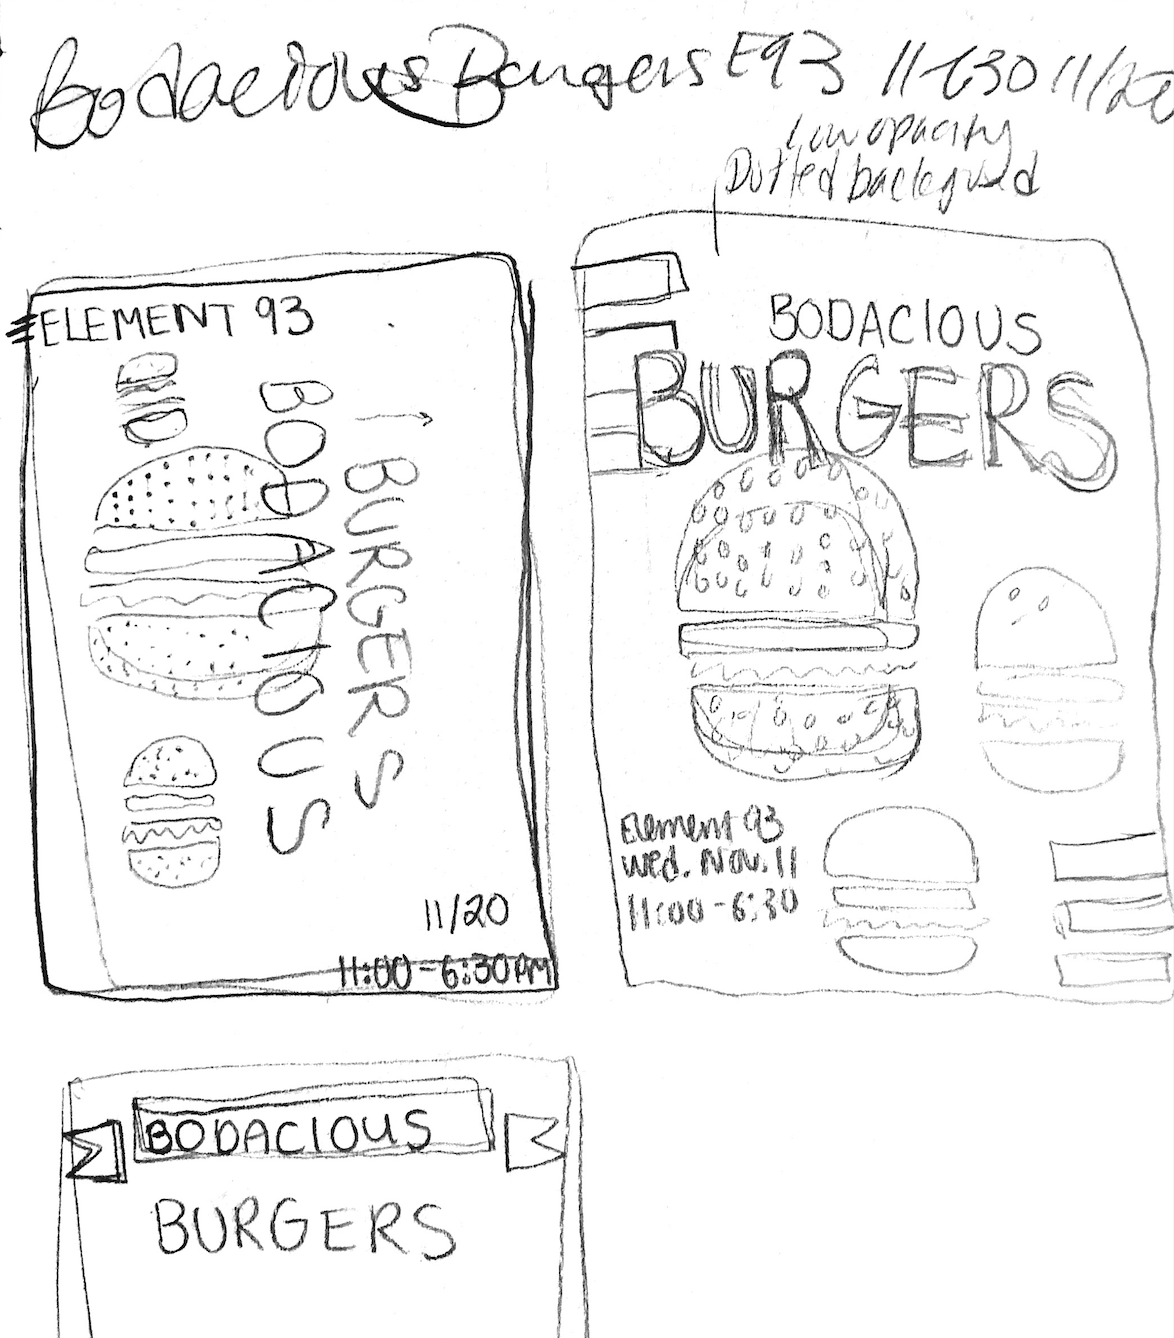 Bodacious Burgers E93 11-630 11/20
low opacity
Dotted background
ELEMENT 93
BODACIOUS
BURGERS
11/20
11:00-6:30PM
BODACIOUS
BURGERS
Element 93
Wed. Nov. 11
11:00-6:30
BODACIOUS
BURGERS